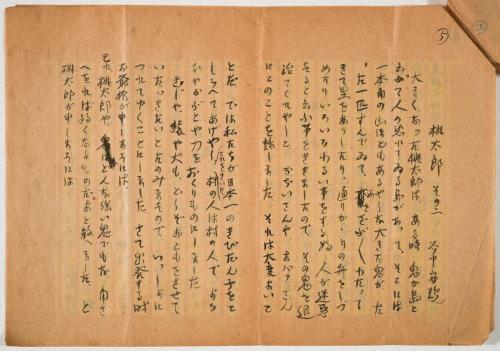 桃太郎 その二
大きくなった桃太郎は、ある時、鬼が島と
云って人の恐れてゐる島があって、そこには
一本角の山ほどもあるやうな大きな鬼が、た
った一匹すんでゐて、
きて里をあらしたり、通りかゝりの舟をしづ
めたりいろいろわるい事をする為、人が迷惑
をきゝましたので、その鬼を退
治てくれやうと、おぢいさんやおばあさん
にこのことを話しました。それは大変よいこ
とだ、では私たちが日本一のきびだんごを
こしらへてあげやうし、村の人は村の人で、よろ
ひやかぶとや刀をおくりものにしました。
きじや、猿や犬も、どうぞおともをさせて
いたゞきたいとたのみますもので、いっしょに
つれてゆくことにしました。さて出発する時
お爺様が申しますには、
これ桃太郎や、どんな強い鬼でもな、角さ
へとれば弱くなるものだよと教へました。と
桃太郎が申しますには